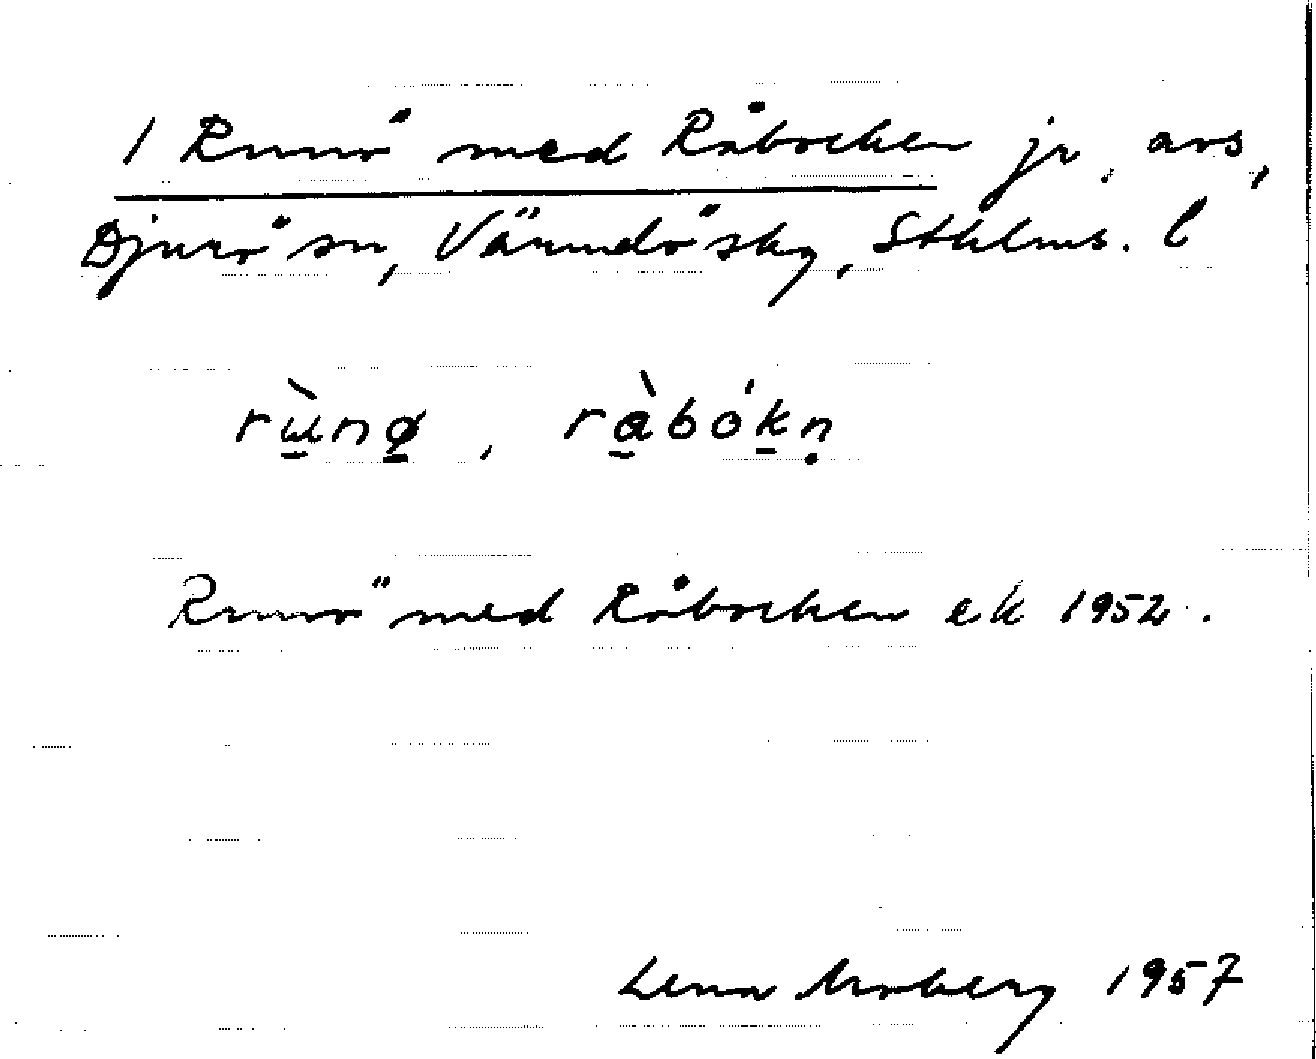 1 Runö med Råbocken jr, avs,
Djurö sn, Värmdö skg, Sthlms. l
rùnø, ràbókṇ
Runö med Råbocken ek 1952.
Lena Moberg 1957